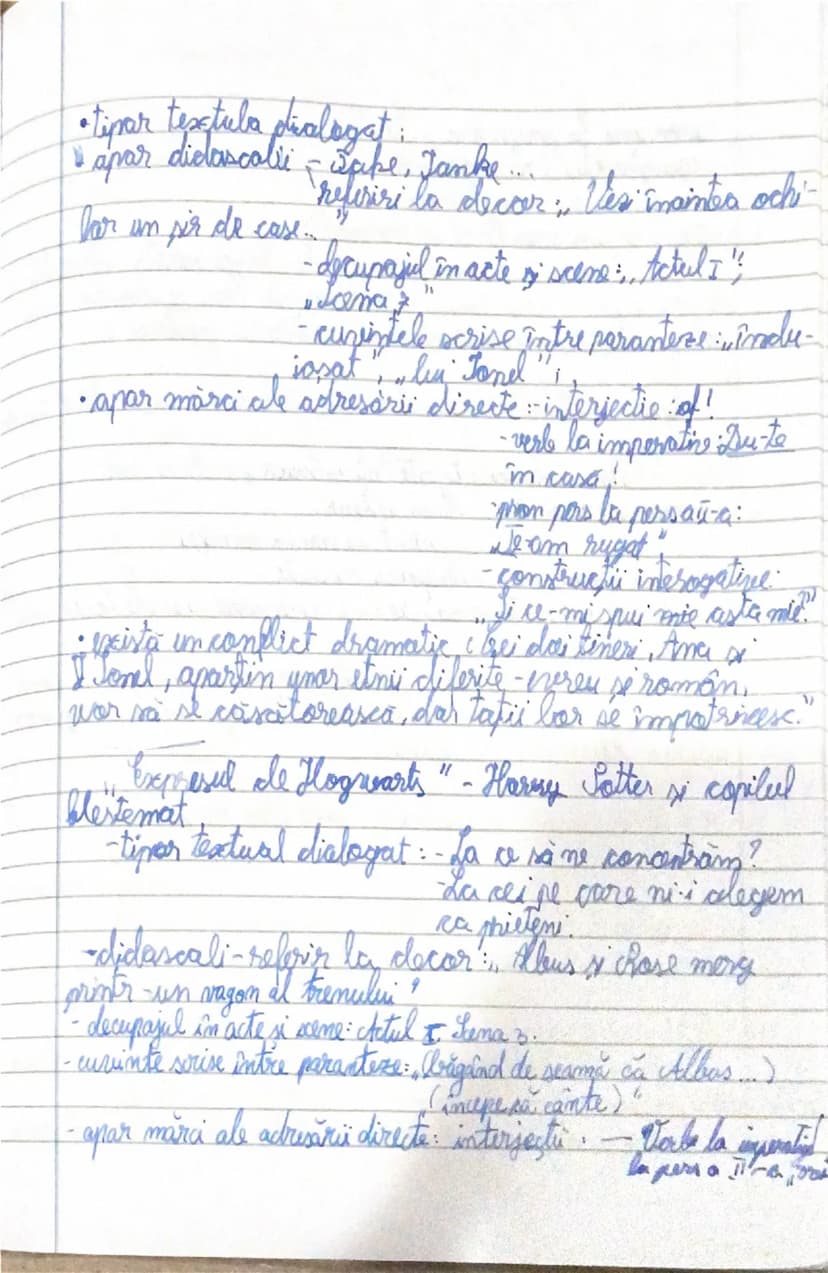 • tipar textula dialogat ;
• apar didascalii - Țache, Ianke ...
- referiri la decor: „Vezi înaintea ochi-
lor un șir de case..”
- decupajul în acte și scene: „Actul I”;
„Scena 7”
- cuvintele scrise între paranteze: „îndu-
ioșat”, „lui Ionel”;
• apar mărci ale adresării directe: - interjectie: of!
- verb la imperativ: Du-te
în casă!
- pron pers la pers a II-a:
„Te-am rugat”
- construcții interogative:
„Și ce-mi spui mie asta mie?”
• există un conflict dramatic: Cei doi tineri, Ana și
Ionel, aparțin unor etnii diferite - evreu și român,
vor să se căsătorească, dar tații lor se împotrivesc.”
„Expresul de Hogwarts” - Harry Potter și copilul
blestemat
- tipar textual dialogat: - La ce să ne concentrăm?
- La cei pe care ni-i alegem
ca prieteni.
- didascali - referir la decor: „Albus și Rose merg
printr-un vagon al trenului”
- decupajul în acte și scene: Actul I Scena 3.
- cuvinte scrise între paranteze: „(băgând de seamă că Albus...)
(începe să cânte)”
- apar mărci ale adresării directe: interjecții: — Verbe la imperativ
la pers a II-a